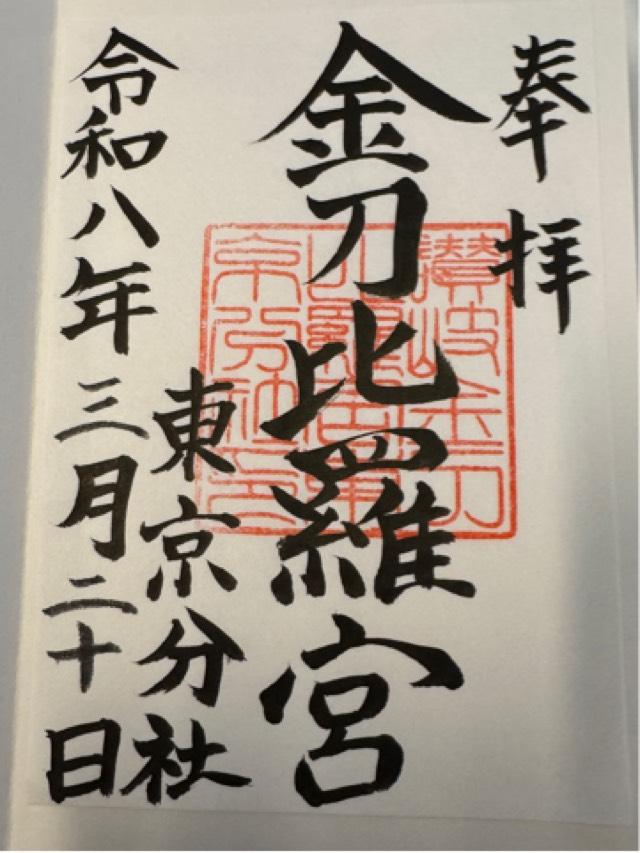 奉拝
金刀比羅宮
東京分社
令和八年三月二十日
讃岐金刀
比羅宮東
京分社印